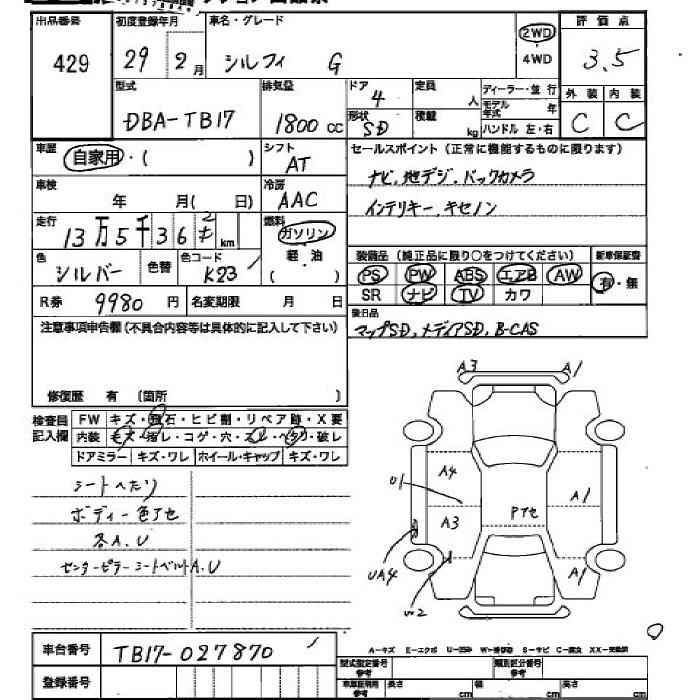 出品番号 初度登録年月 車名・グレード 評価点
429 29年 2月 シルフィ G 2WD 4WD 3.5
型式 排気量 ドア 4 定員 人 ディーラー・並行 外装 内装
DBA-TB17 1800cc 形状 SD 積載 kg モデル年式 年 ハンドル 左・右 C C
車歴 自家用・( ) シフト AT セールスポイント(正常に機能するものに限ります)
車検 年 月(日) 冷房 AAC ナビ、地デジ、バックカメラ
走行 13万5千362キ km 燃料 ガソリン 軽・油 ( ) インテリキー、キセノン
色 シルバー 色替 色コード K23
装備品(純正品に限り○をつけてください) 新車保証書
PS PW ABS エアB AW 有・無
SR ナビ TV カワ
R券 9980円 名変期限 月 日
後日品
マップSD、メディアSD、B-CAS
注意事項申告欄(不具合内容等は具体的に記入して下さい)
修復歴 有 〔箇所 〕
検査員記入欄 FW キズ・飛石・ヒビ割・リペア跡・X要
内装 キズ・擦レ・コゲ・穴・スレ・ヘタリ・破レ
ドアミラー キズ・ワレ ホイール・キャップ キズ・ワレ
シートヘたり
ボディー色アセ
各A.U
センターピラーシートベルトA.U
A3 A1
A4
U1
A3 Pアセ A1
UA4 A1
W2
A-キズ E-エクボ U-凹み W-補修跡 S-サビ C-腐食 XX-交換済
車台番号 TB17-027870
登録番号
型式指定番号 参考 類別区分番号 参考
車庫証明用 参考 長さ cm 幅 cm 高さ cm